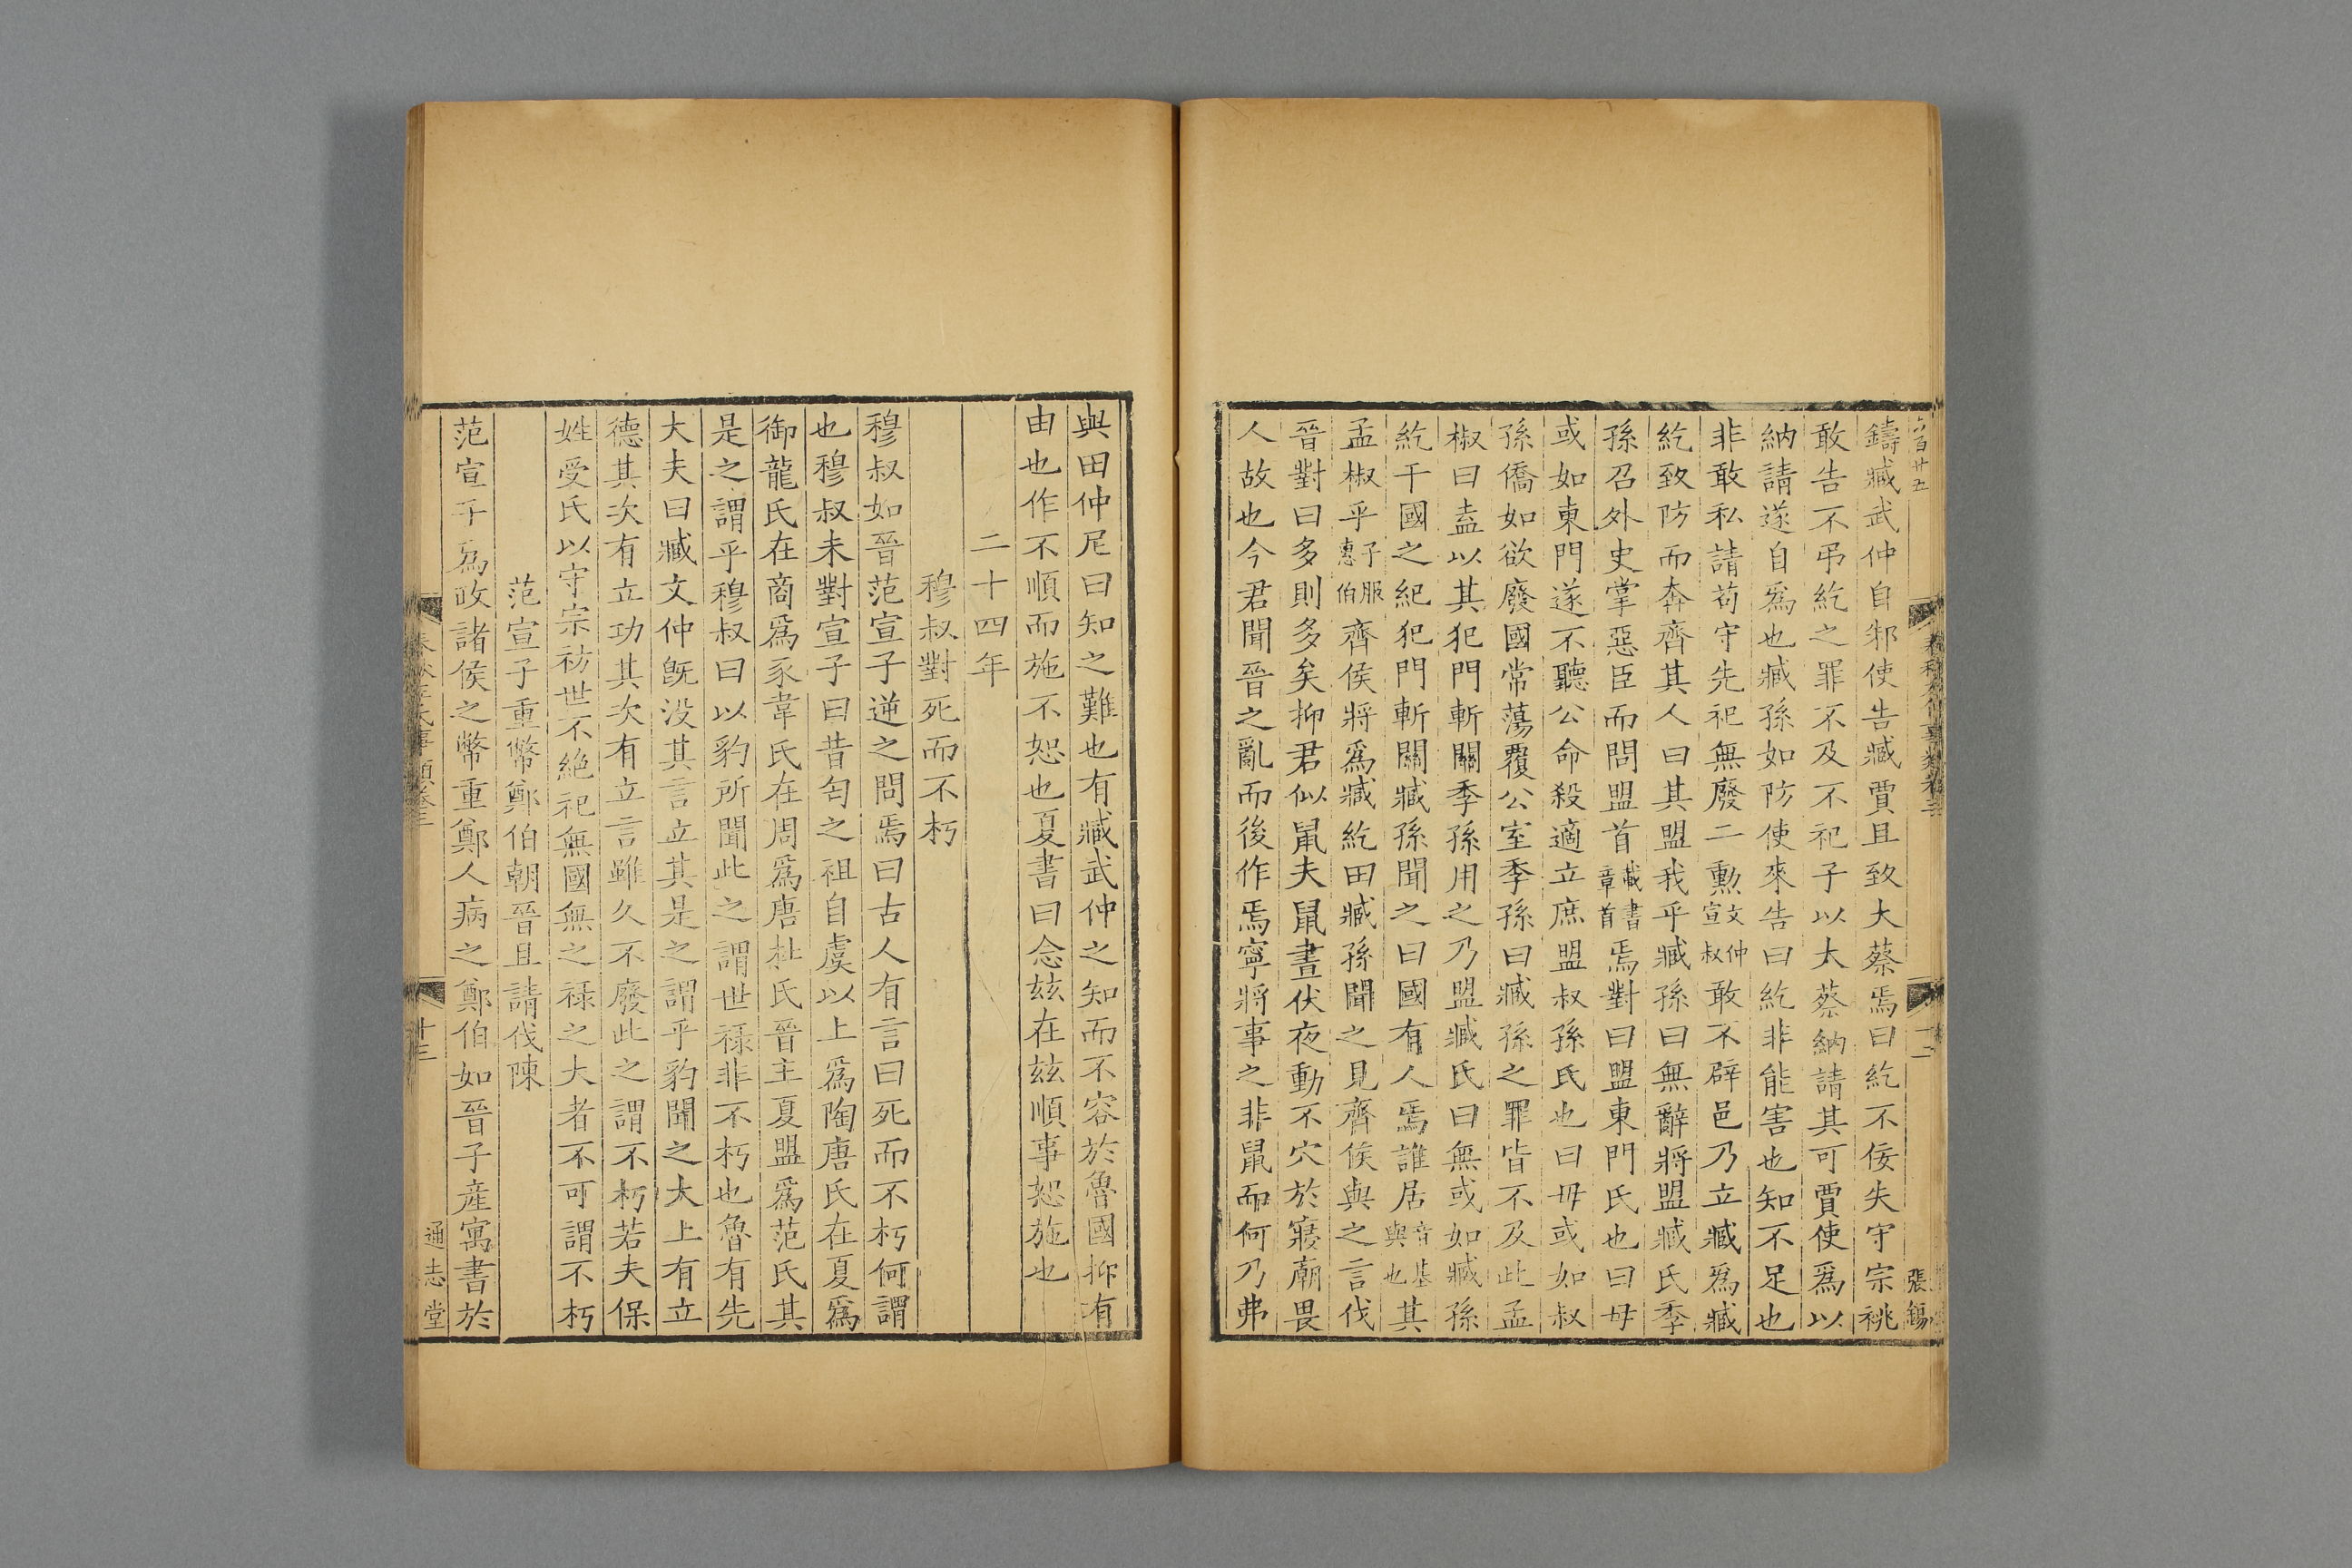 六百廿五
張錫
鑄臧武仲自邾使告臧賈且致大蔡焉曰紇不佞失守宗祧
敢告不弔紇之罪不及不祀子以大蔡納請其可賈使爲以
納請遂自爲也臧孫如防使來告曰紇非能害也知不足也
非敢私請苟守先祀無廢二勲文仲宣叔敢不辟邑乃立臧爲臧
紇致防而奔齊其人曰其盟我乎臧孫曰無辭將盟臧氏季
孫召外史掌惡臣而問盟首載書章首焉對曰盟東門氏也曰毋
或如東門遂不聽公命殺適立庶盟叔孫氏也曰毋或如叔
孫僑如欲廢國常蕩覆公室季孫曰臧孫之罪皆不及此孟
椒曰盍以其犯門斬關季孫用之乃盟臧氏曰無或如臧孫
紇干國之紀犯門斬關臧孫聞之曰國有人焉誰居音基與也其
孟椒乎子服惠伯齊侯將爲臧紇田臧孫聞之見齊侯與之言伐
晉對曰多則多矣抑君似鼠夫鼠晝伏夜動不穴於寢廟畏
人故也今君聞晉之亂而後作焉寧將事之非鼠而何乃弗
與田仲尼曰知之難也有臧武仲之知而不容於魯國抑有
由也作不順而施不恕也夏書曰念玆在玆順事恕施也
二十四年
穆叔對死而不朽
穆叔如晉范宣子逆之問焉曰古人有言曰死而不朽何謂
也穆叔未對宣子曰昔匄之祖自虞以上爲陶唐氏在夏爲
御龍氏在商爲豕韋氏在周爲唐杜氏晉主夏盟爲范氏其
是之謂乎穆叔曰以豹所聞此之謂世禄非不朽也魯有先
大夫曰臧文仲旣没其言立其是之謂乎豹聞之大上有立
德其次有立功其次有立言雖久不廢此之謂不朽若夫保
姓受氏以守宗祊世不絶祀無國無之禄之大者不可謂不朽
范宣子重幣鄭伯朝晉且請伐陳
范宣子爲政諸侯之幣重鄭人病之鄭伯如晉子産寓書於
春秋左氏事類卷三
十三
通志堂